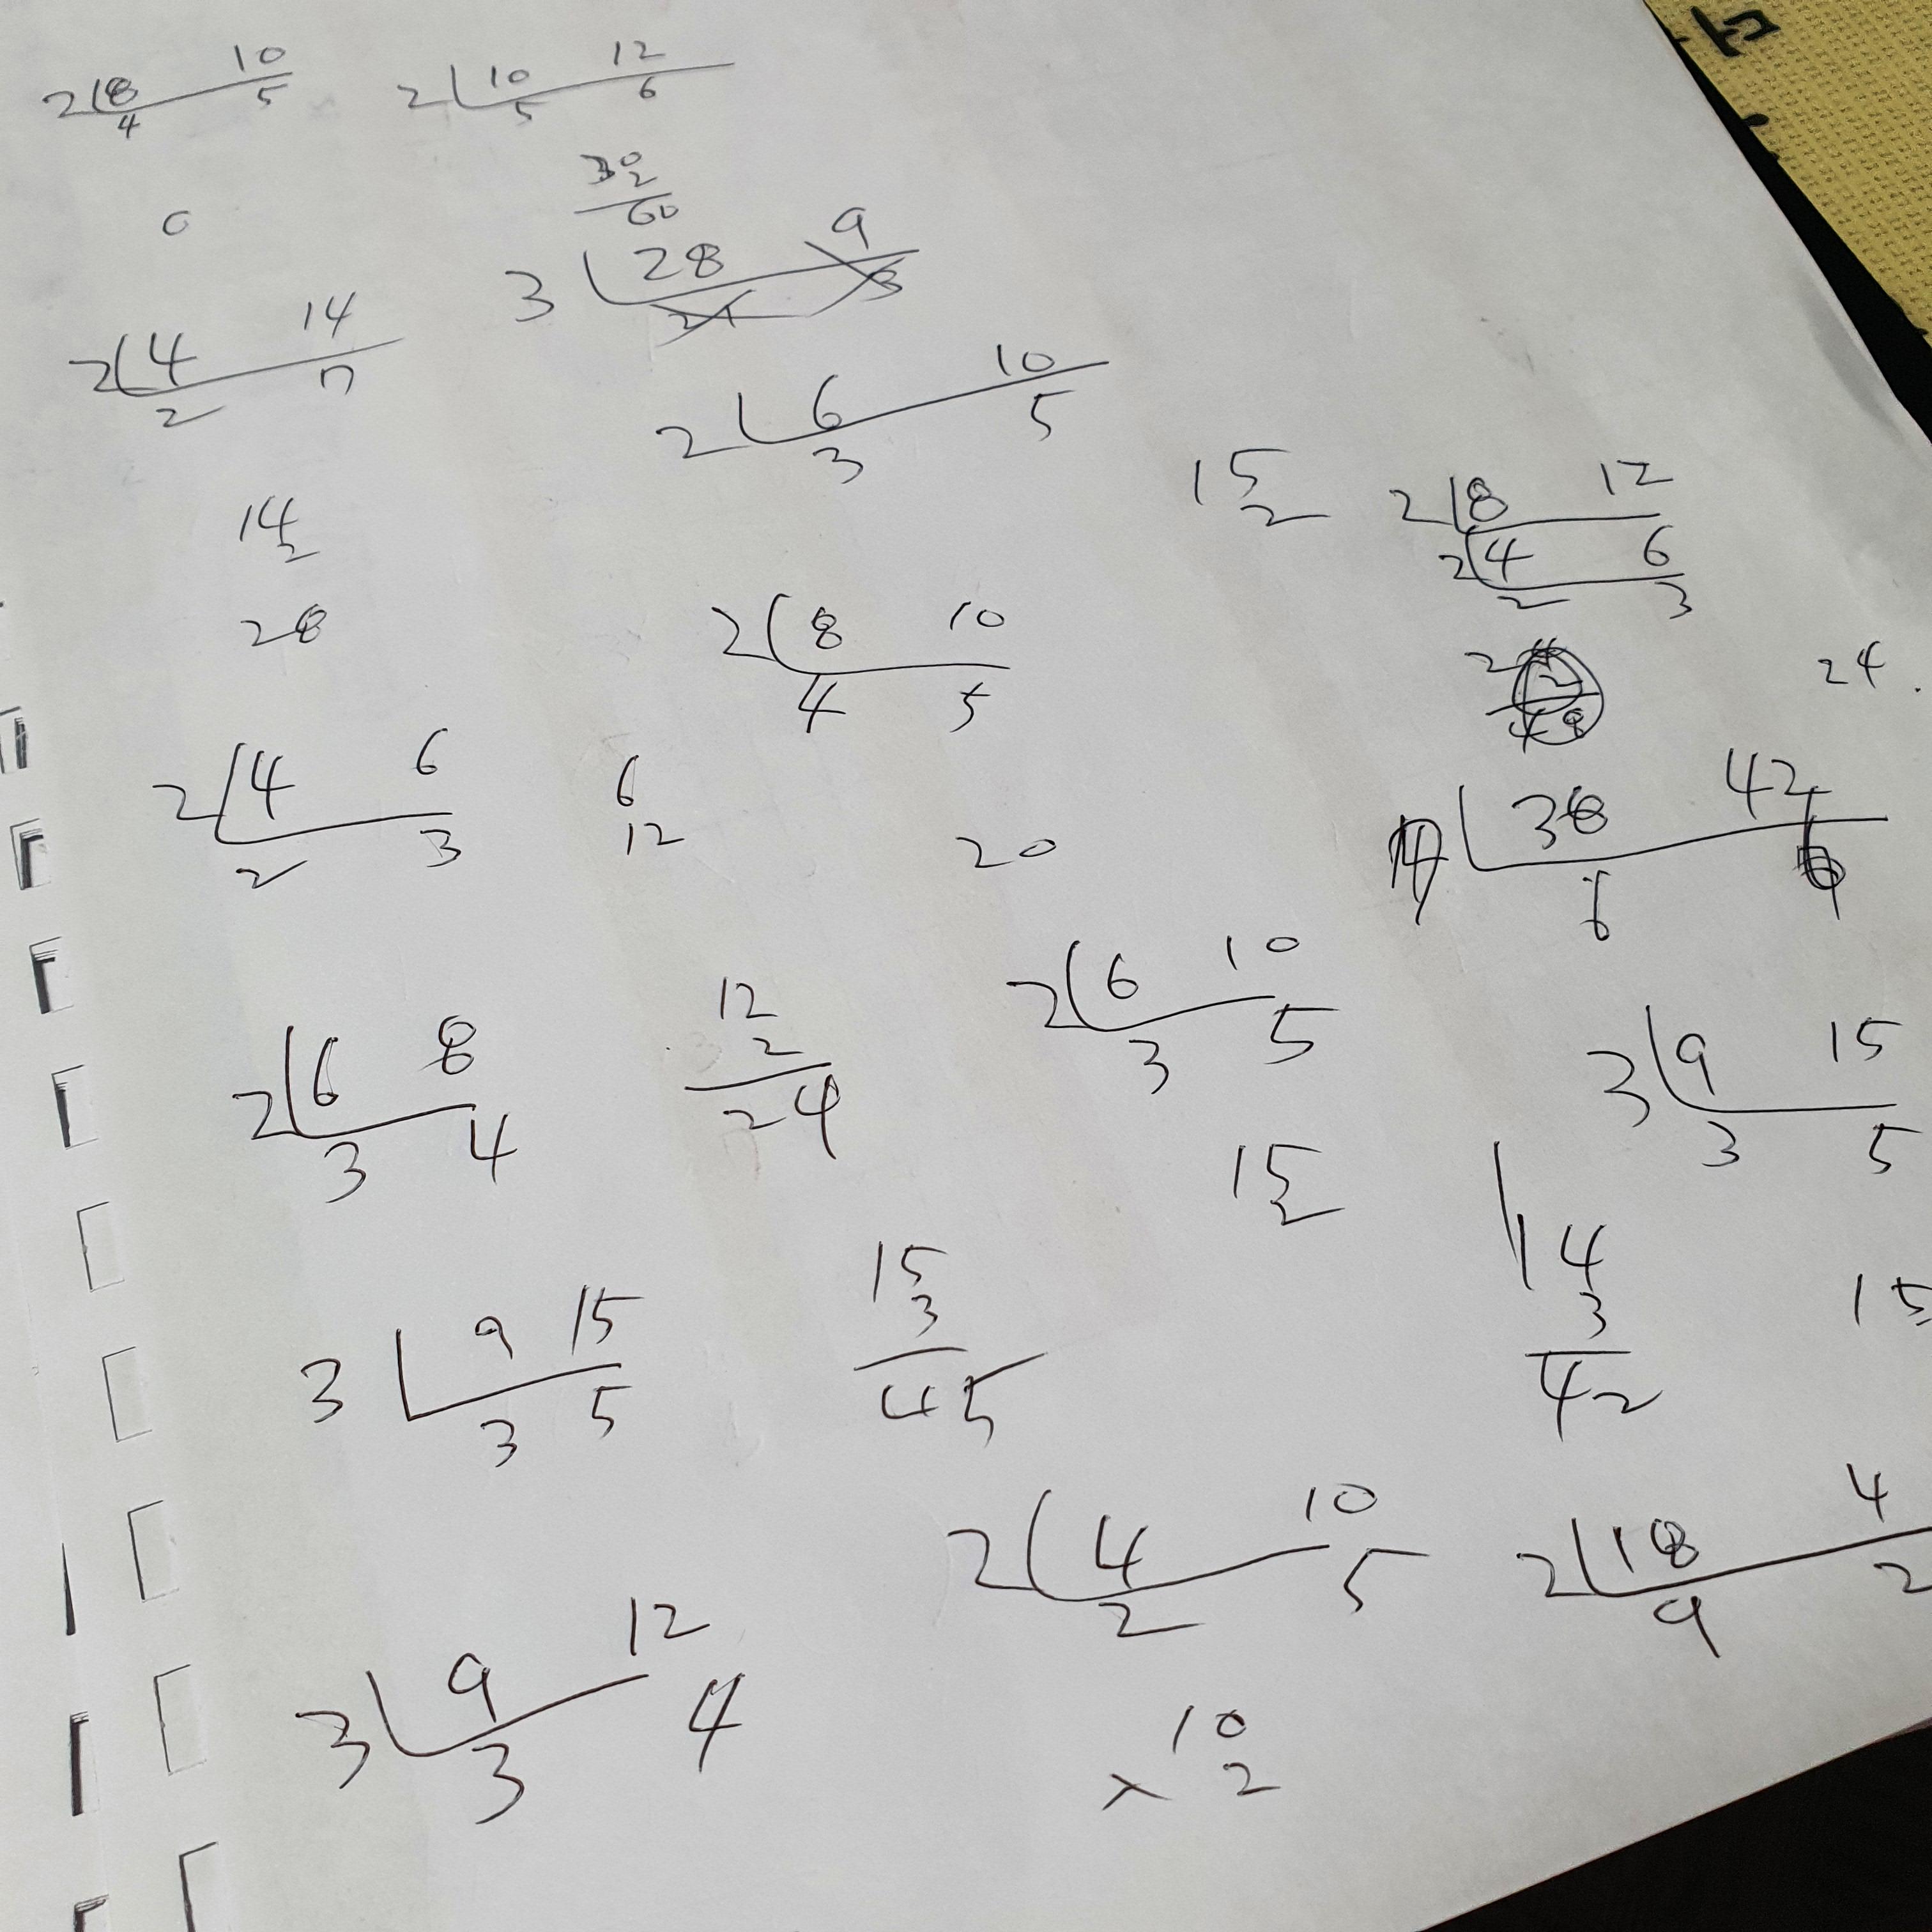 2 8 10
4 5
2 10 12
5 6
30
2
60
0
3 28 9
2 4 14
2 7
2 6 10
3 5
14
2
28
15
2
2 8 12
2 4 6
2 3
2 8 10
4 5
24
2 4 6
2 3
6
12
20
38 42
6
2 6 8
3 4
12
2
24
2 6 10
3 5
15
2
3 9 15
3 5
3 9 15
3 5
15
3
45
14
3
42
15
2 4 10
2 5
2 18 4
9 2
3 9 12
3 4
10
× 2